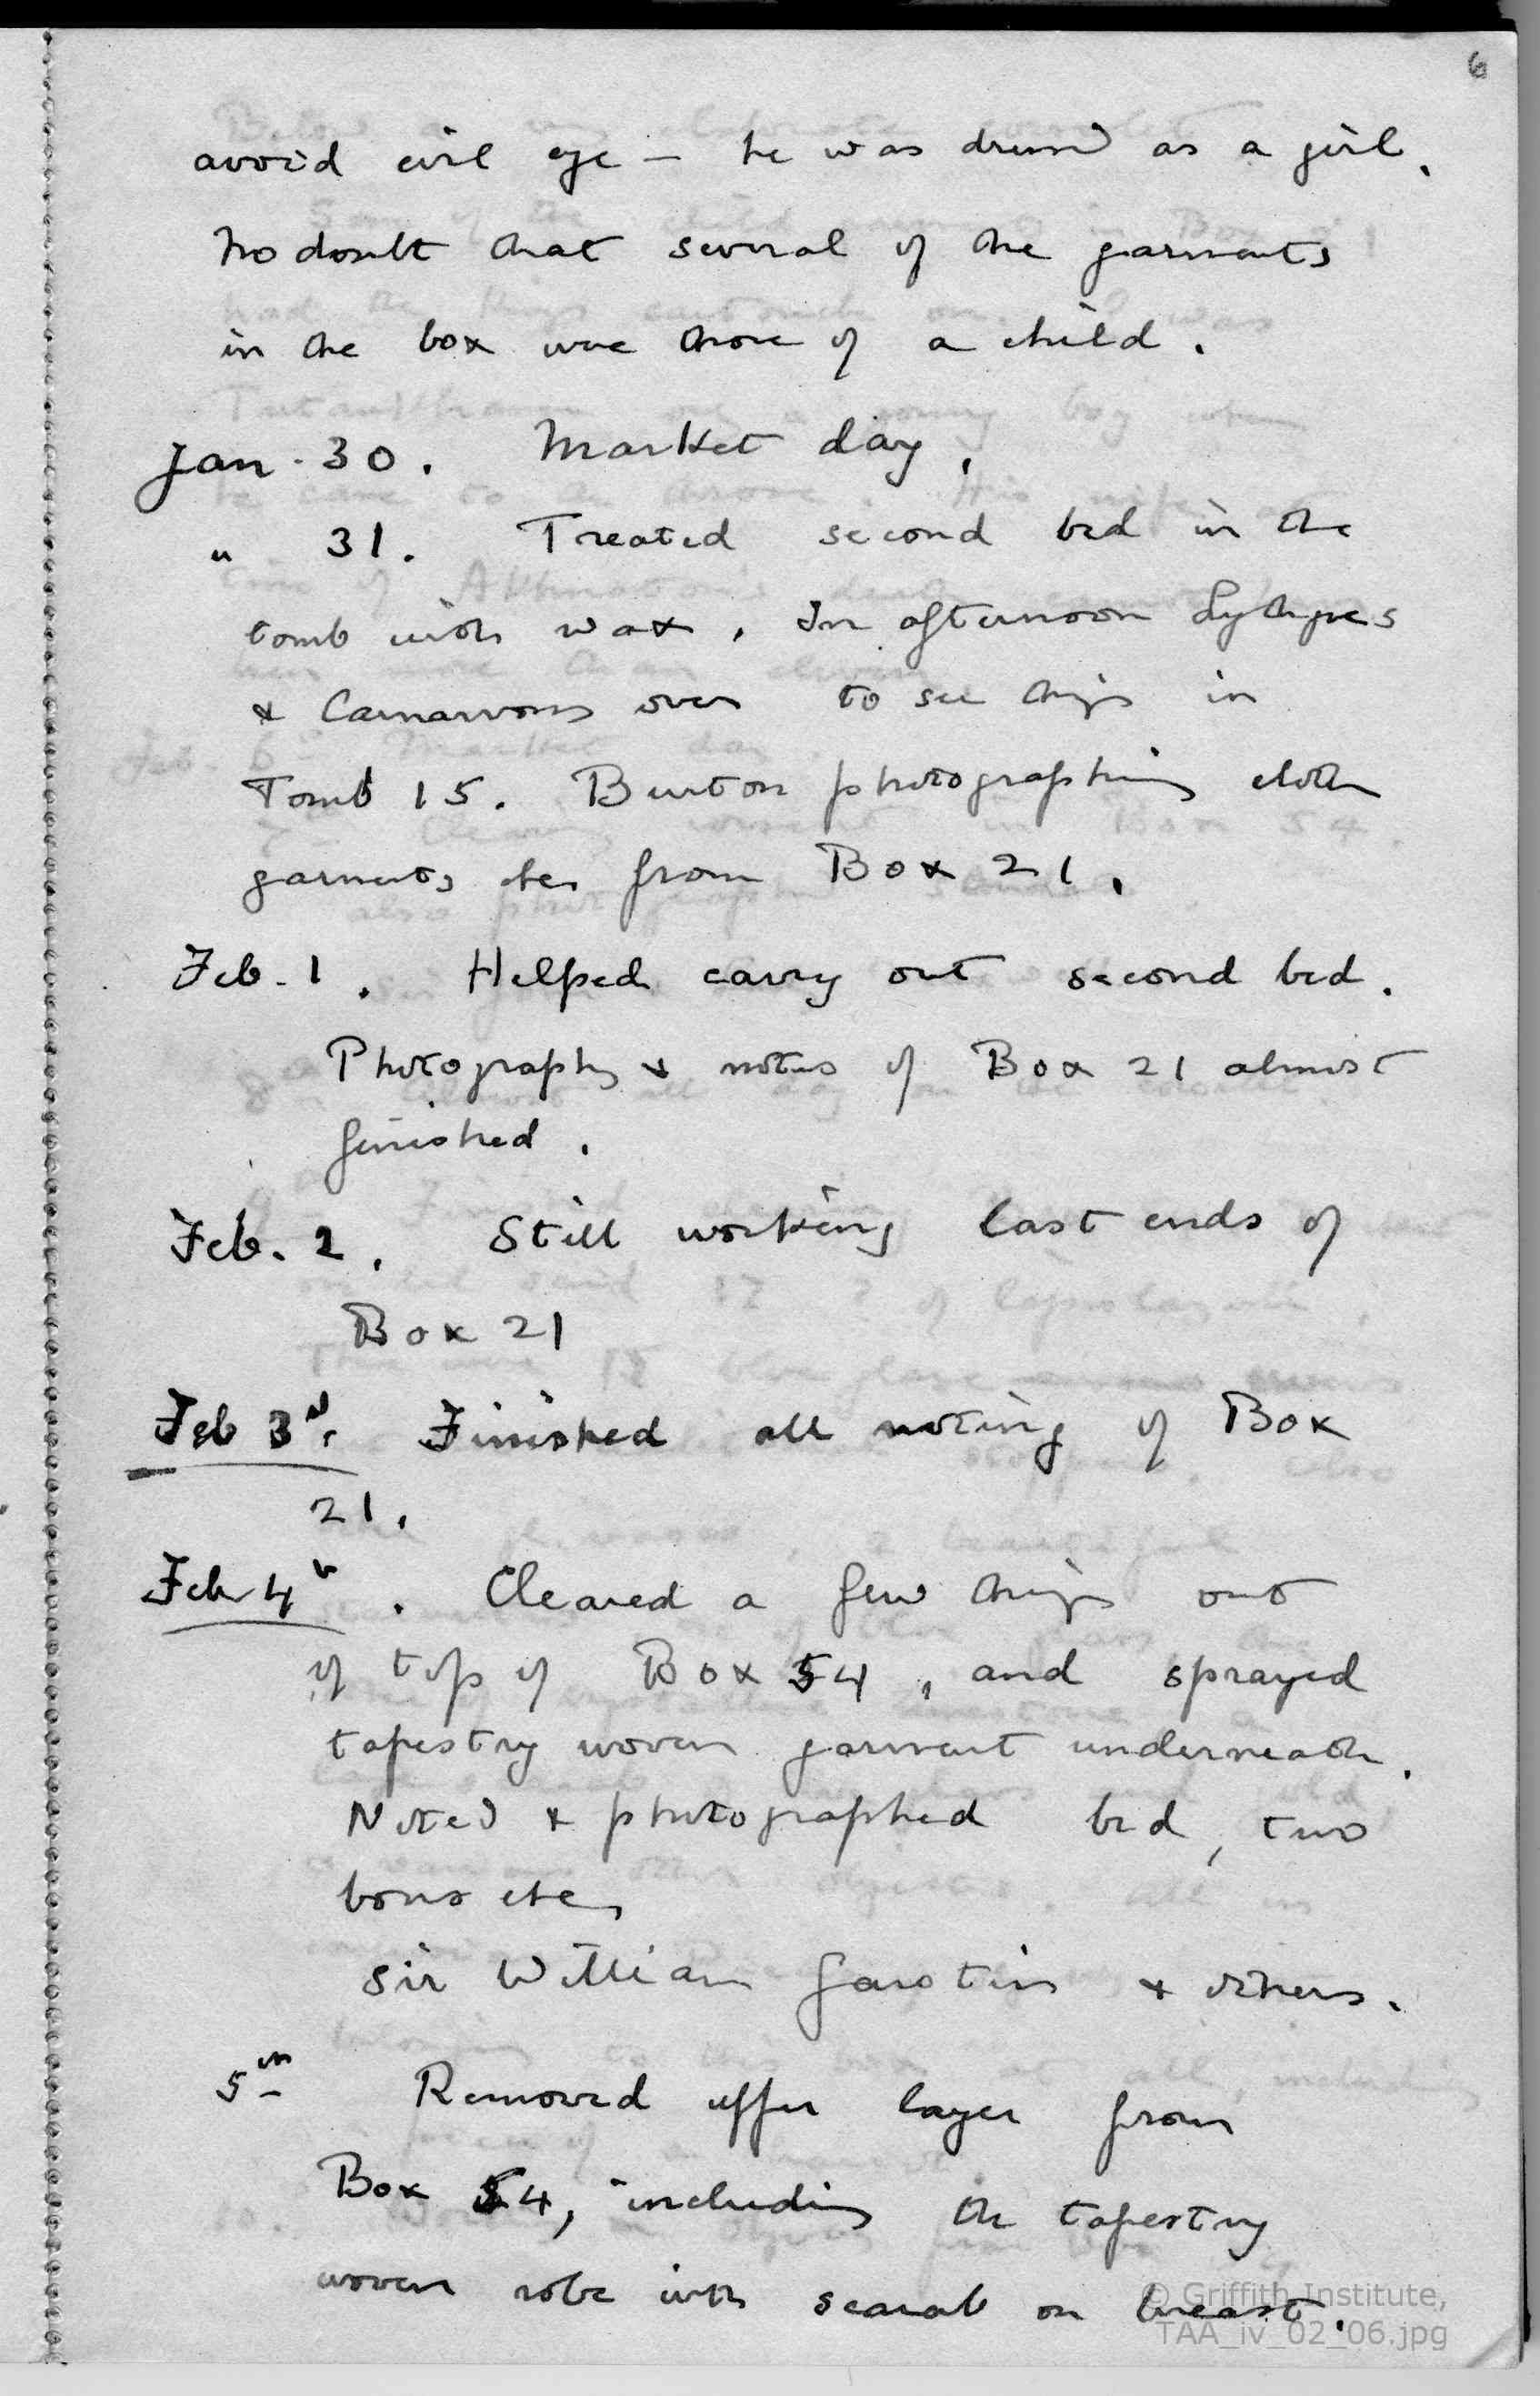 6
avoid evil eye – he was dressed as a girl.
No doubt that several of the garments
in the box were those of a child.
Jan. 30. Market day.
" 31. Treated second bed in the
tomb with wax. In afternoon Lythgoes
& Carnarvons over to see things in
Tomb 15. Burton photographing cloth
garments etc. from Box 21.
Feb. 1. Helped carry out second bed.
Photographs & notes of Box 21 almost
finished.
Feb. 2. Still working last ends of
Box 21
Feb 3rd. Finished all noting of Box
21.
Feb 4th. Cleared a few things out
of top of Box 54, and sprayed
tapestry woven garment underneath.
Noted & photographed bed, two
bows etc.
Sir William Garstin & others.
5th Removed upper layer from
Box 54, including the tapestry
woven robe with scarab on breast.
© Griffith Institute,
TAA_iv_02_06.jpg